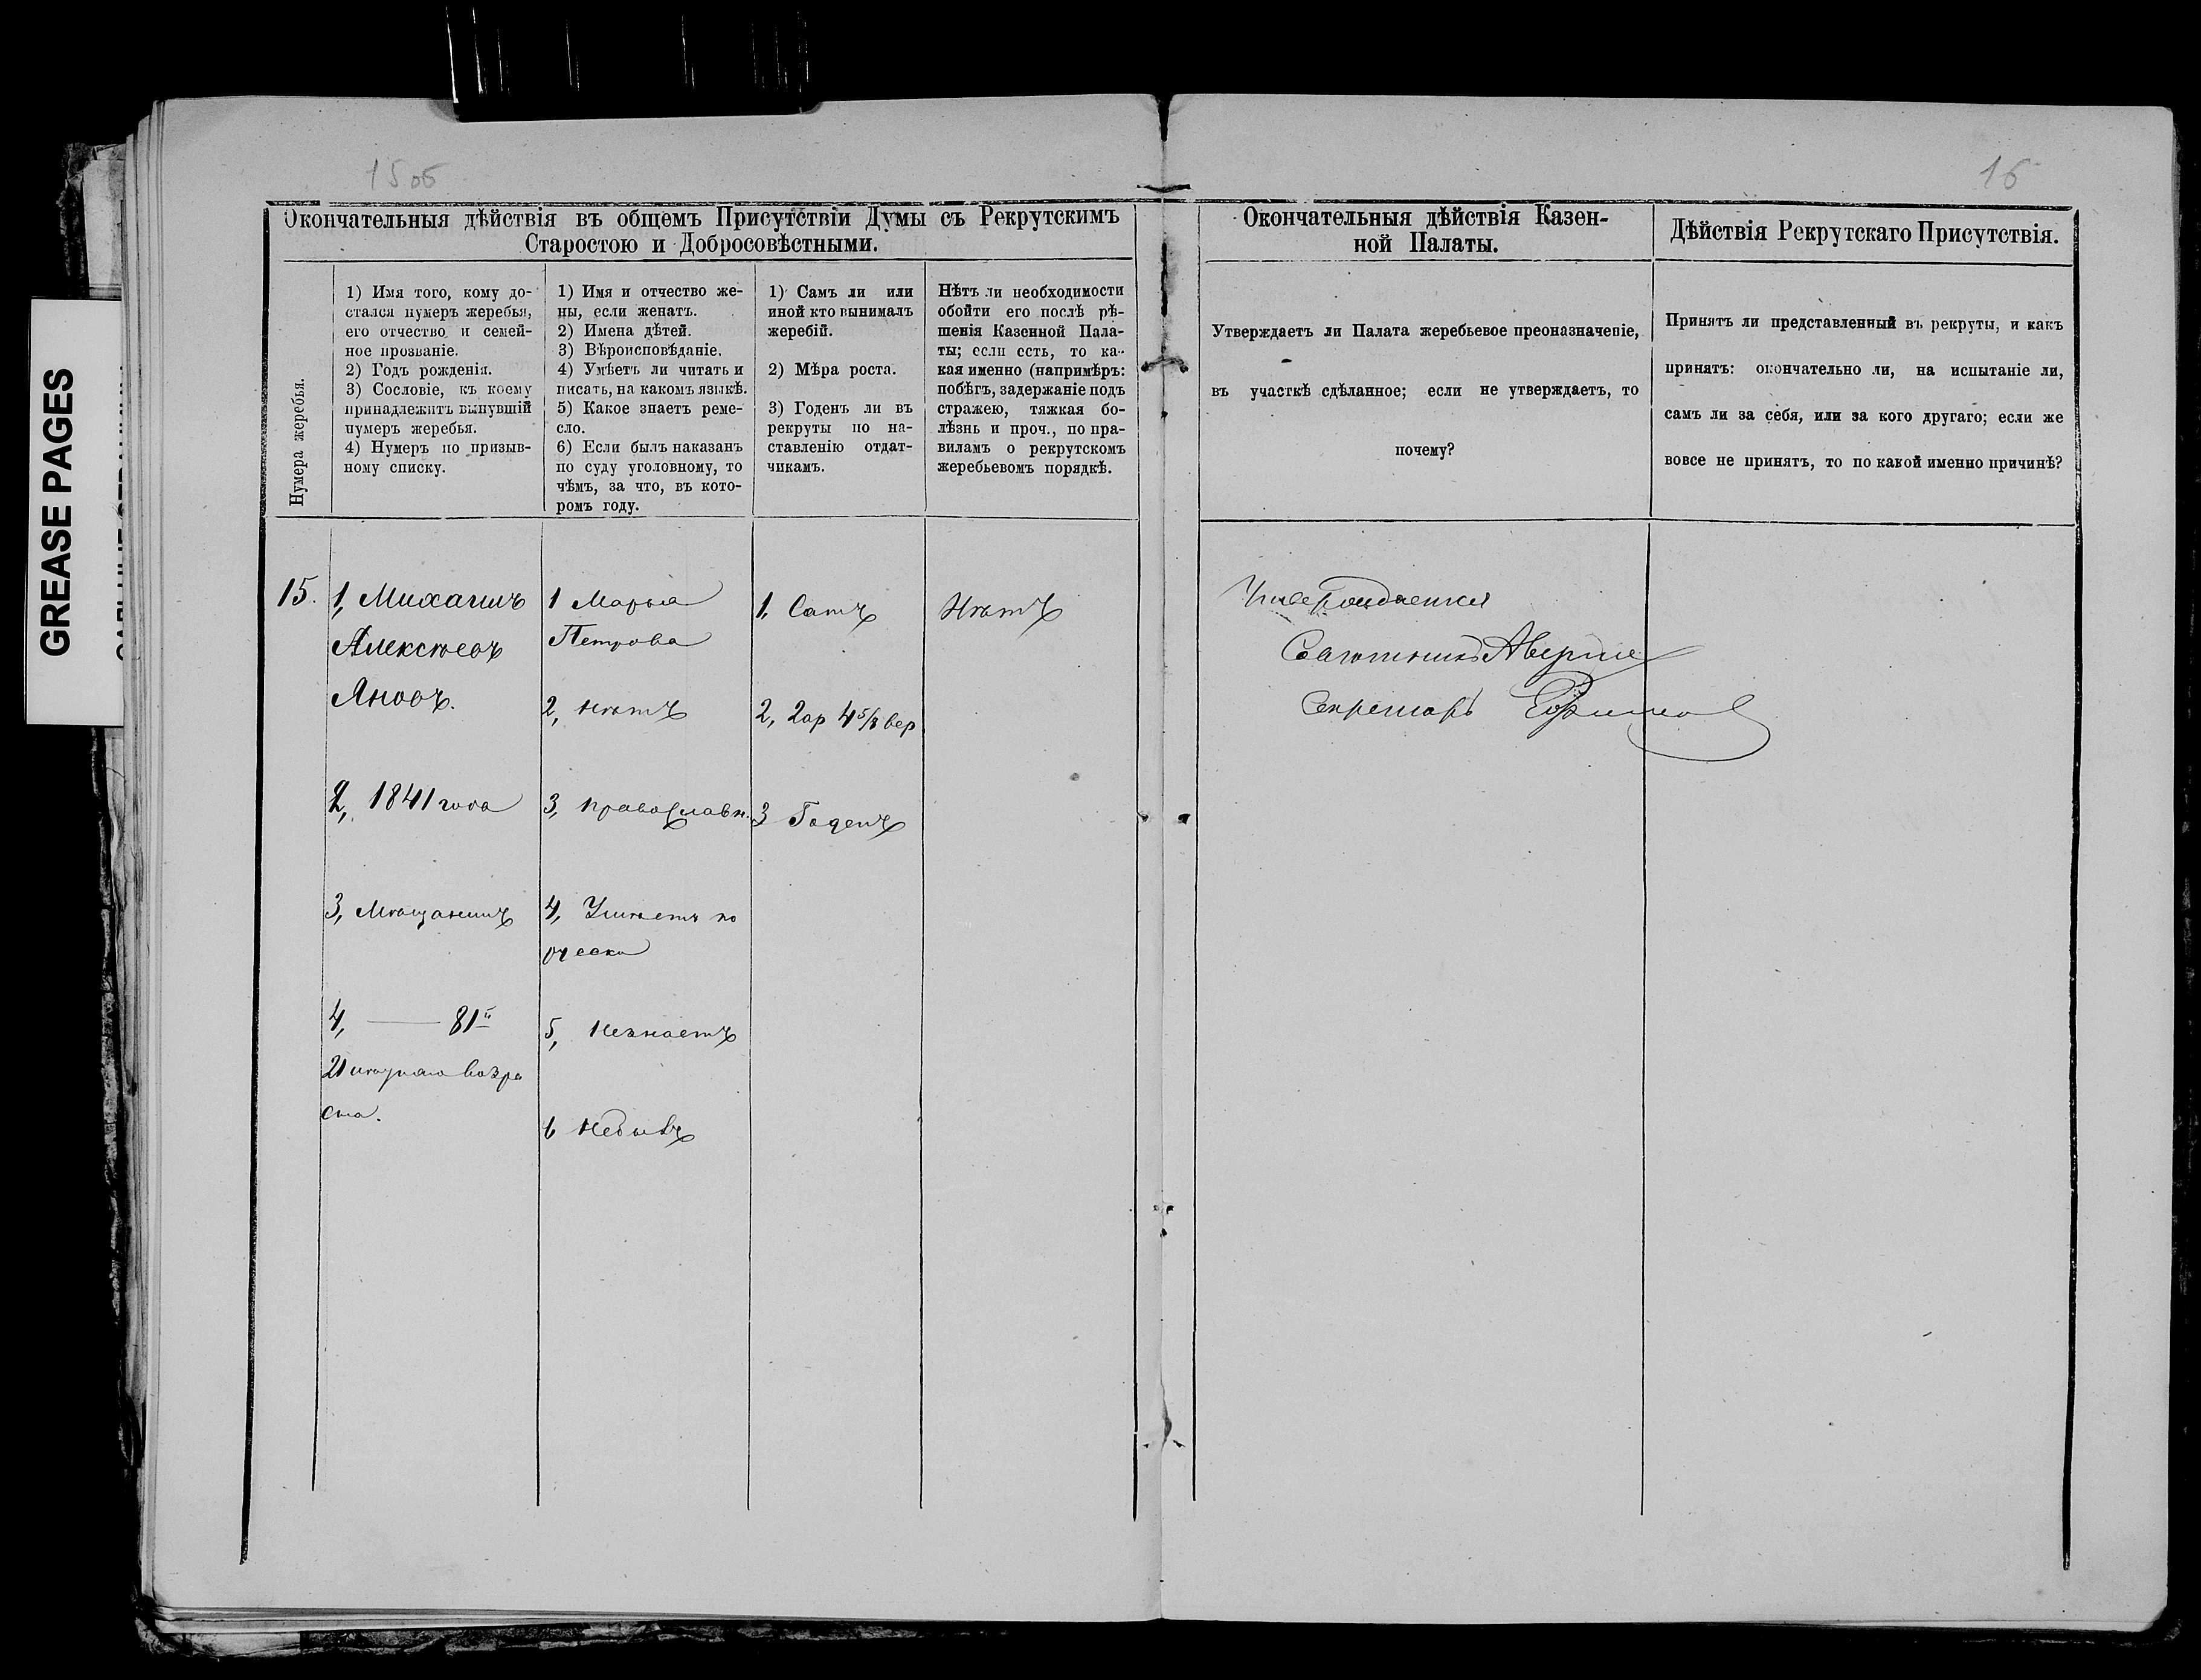 GREASE PAGES
15 об
16
Окончательныя дѣйствія въ общемъ Присутствіи Думы съ Рекрутскимъ
Старостою и Добросовѣстными.
Нумера жеребья.
1) Имя того, кому до-
стался нумеръ жеребья,
его отчество и семей-
ное прозваніе.
2) Годъ рожденія.
3) Сословіе, къ коему
принадлежитъ вынувшій
нумеръ жеребья.
4) Нумеръ по призыв-
ному списку.
1) Имя и отчество же-
ны, если женатъ.
2) Имена дѣтей.
3) Вѣроисповѣданіе.
4) Умѣетъ ли читать и
писать, на какомъ языкѣ.
5) Какое знаетъ реме-
сло.
6) Если былъ наказанъ
по суду уголовному, то
чѣмъ, за что, въ кото-
ромъ году.
1) Самъ ли или
иной кто вынималъ
жеребій.
2) Мѣра роста.
3) Годенъ ли въ
рекруты по на-
ставленію отдат-
чикамъ.
Нѣтъ ли необходимости
обойти его послѣ рѣ-
шенія Казенной Пала-
ты; если есть, то ка-
кая именно (напримѣръ:
побѣгъ, задержаніе подъ
стражею, тяжкая бо-
лѣзнь и проч., по пра-
виламъ о рекрутскомъ
жеребьевомъ порядкѣ.
Окончательныя дѣйствія Казен-
ной Палаты.
Утверждаетъ ли Палата жеребьевое преоназначеніе,
въ участкѣ сдѣланное; если не утверждаетъ, то
почему?
Дѣйствія Рекрутскаго Присутствія.
Принятъ ли представленный въ рекруты, и какъ
принятъ: окончательно ли, на испытаніе ли,
самъ ли за себя, или за кого другаго; если же
вовсе не принятъ, то по какой именно причинѣ?
15.
1, Михаилъ
Алексѣевъ
Яновъ.
2, 1841 года
3, Мѣщанинъ
4, — 81й
21 лѣтняго возра
ста.
1 Марья
Петрова
2, нѣтъ
3, православн.
4, Умѣетъ по
русски
5, Незнаетъ
6 Небылъ
1, Самъ
2, 2 ар 4 5/8 вер
3 Годенъ
Нѣтъ
Утверждается
Секретарь